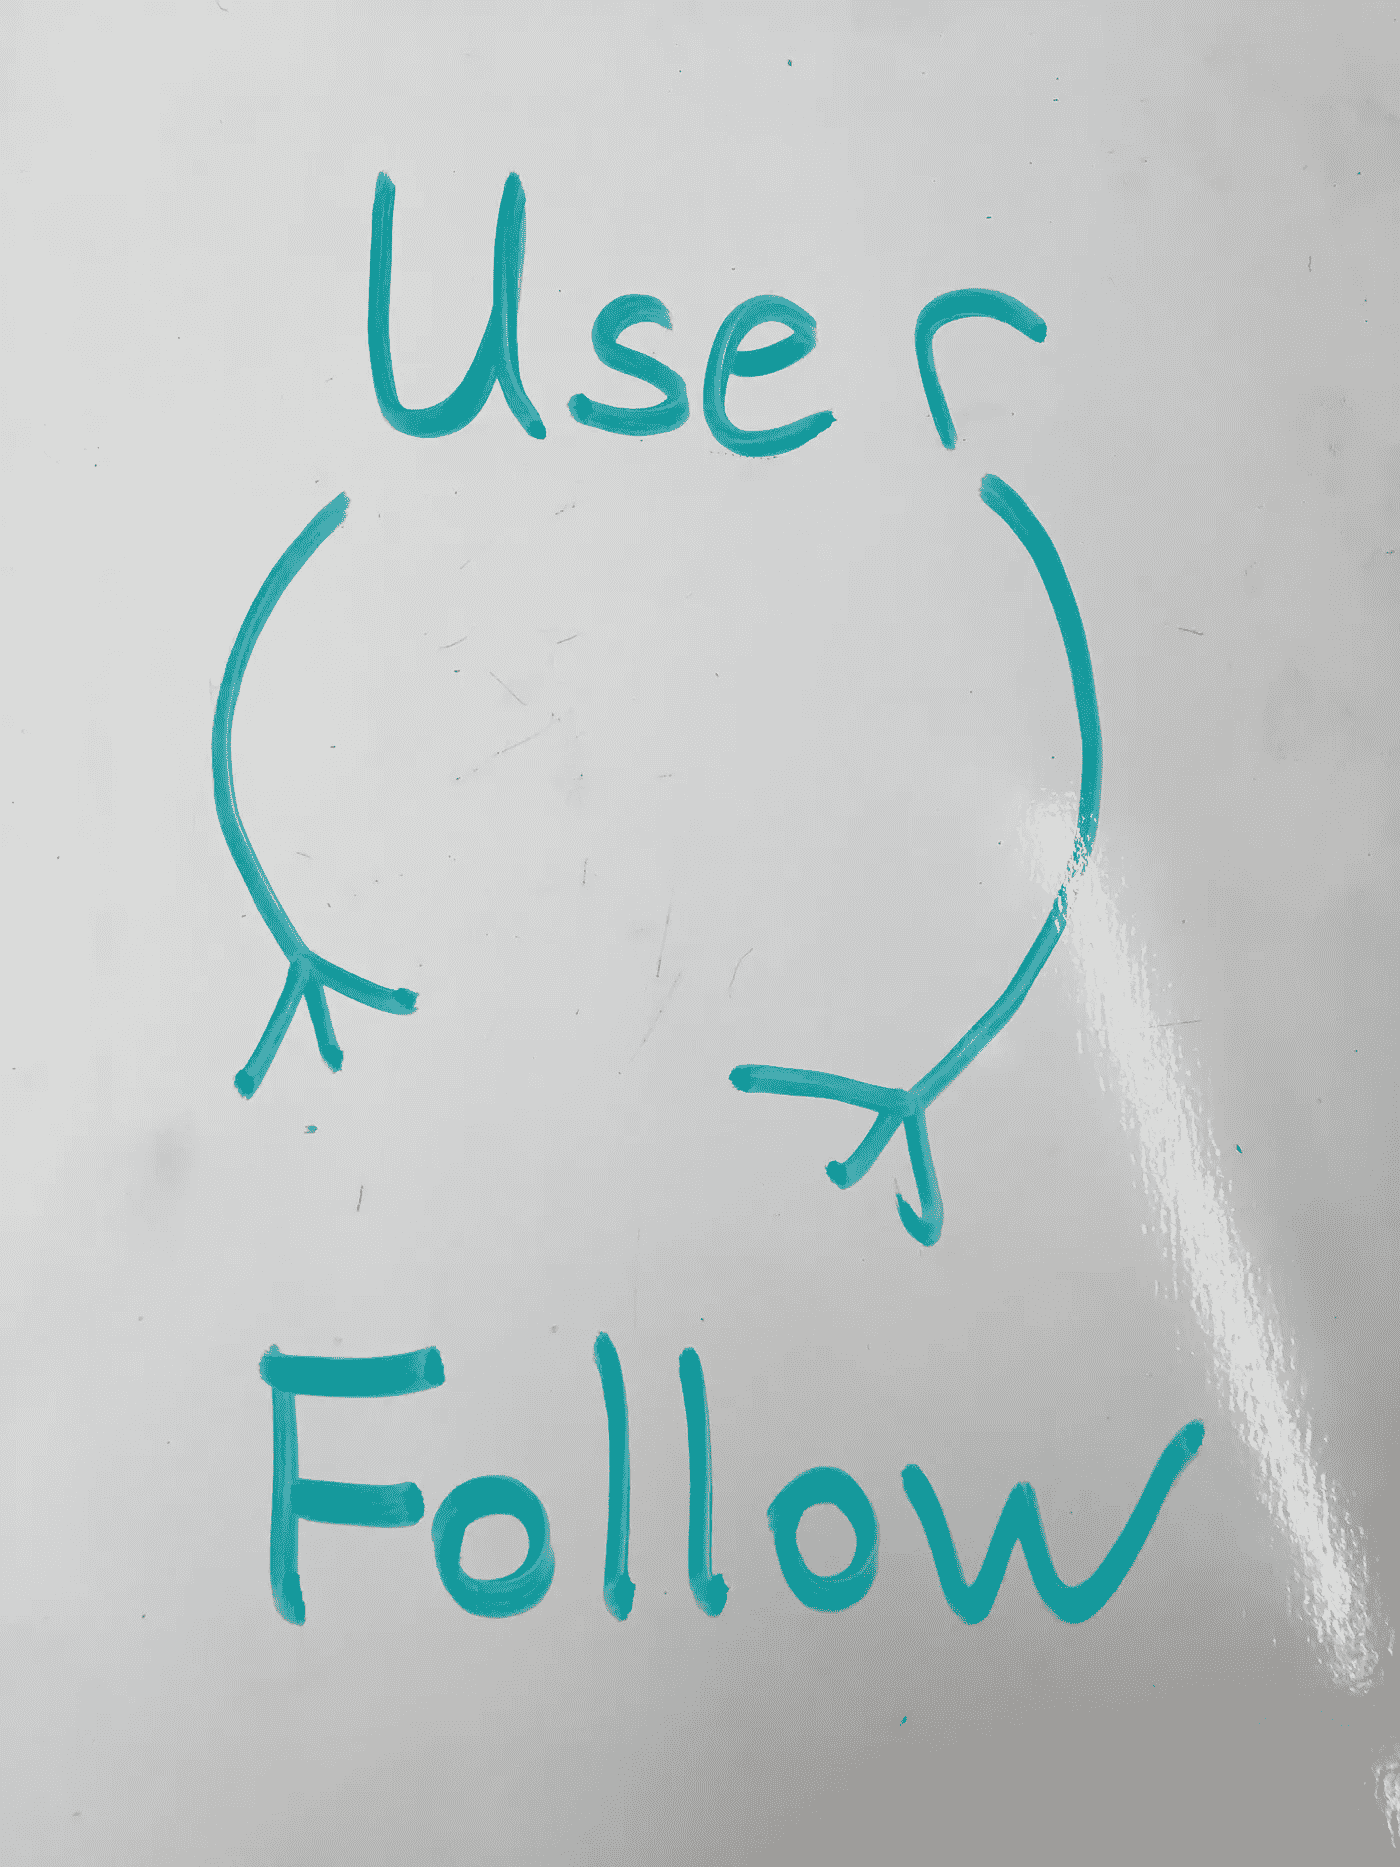 User
Follow